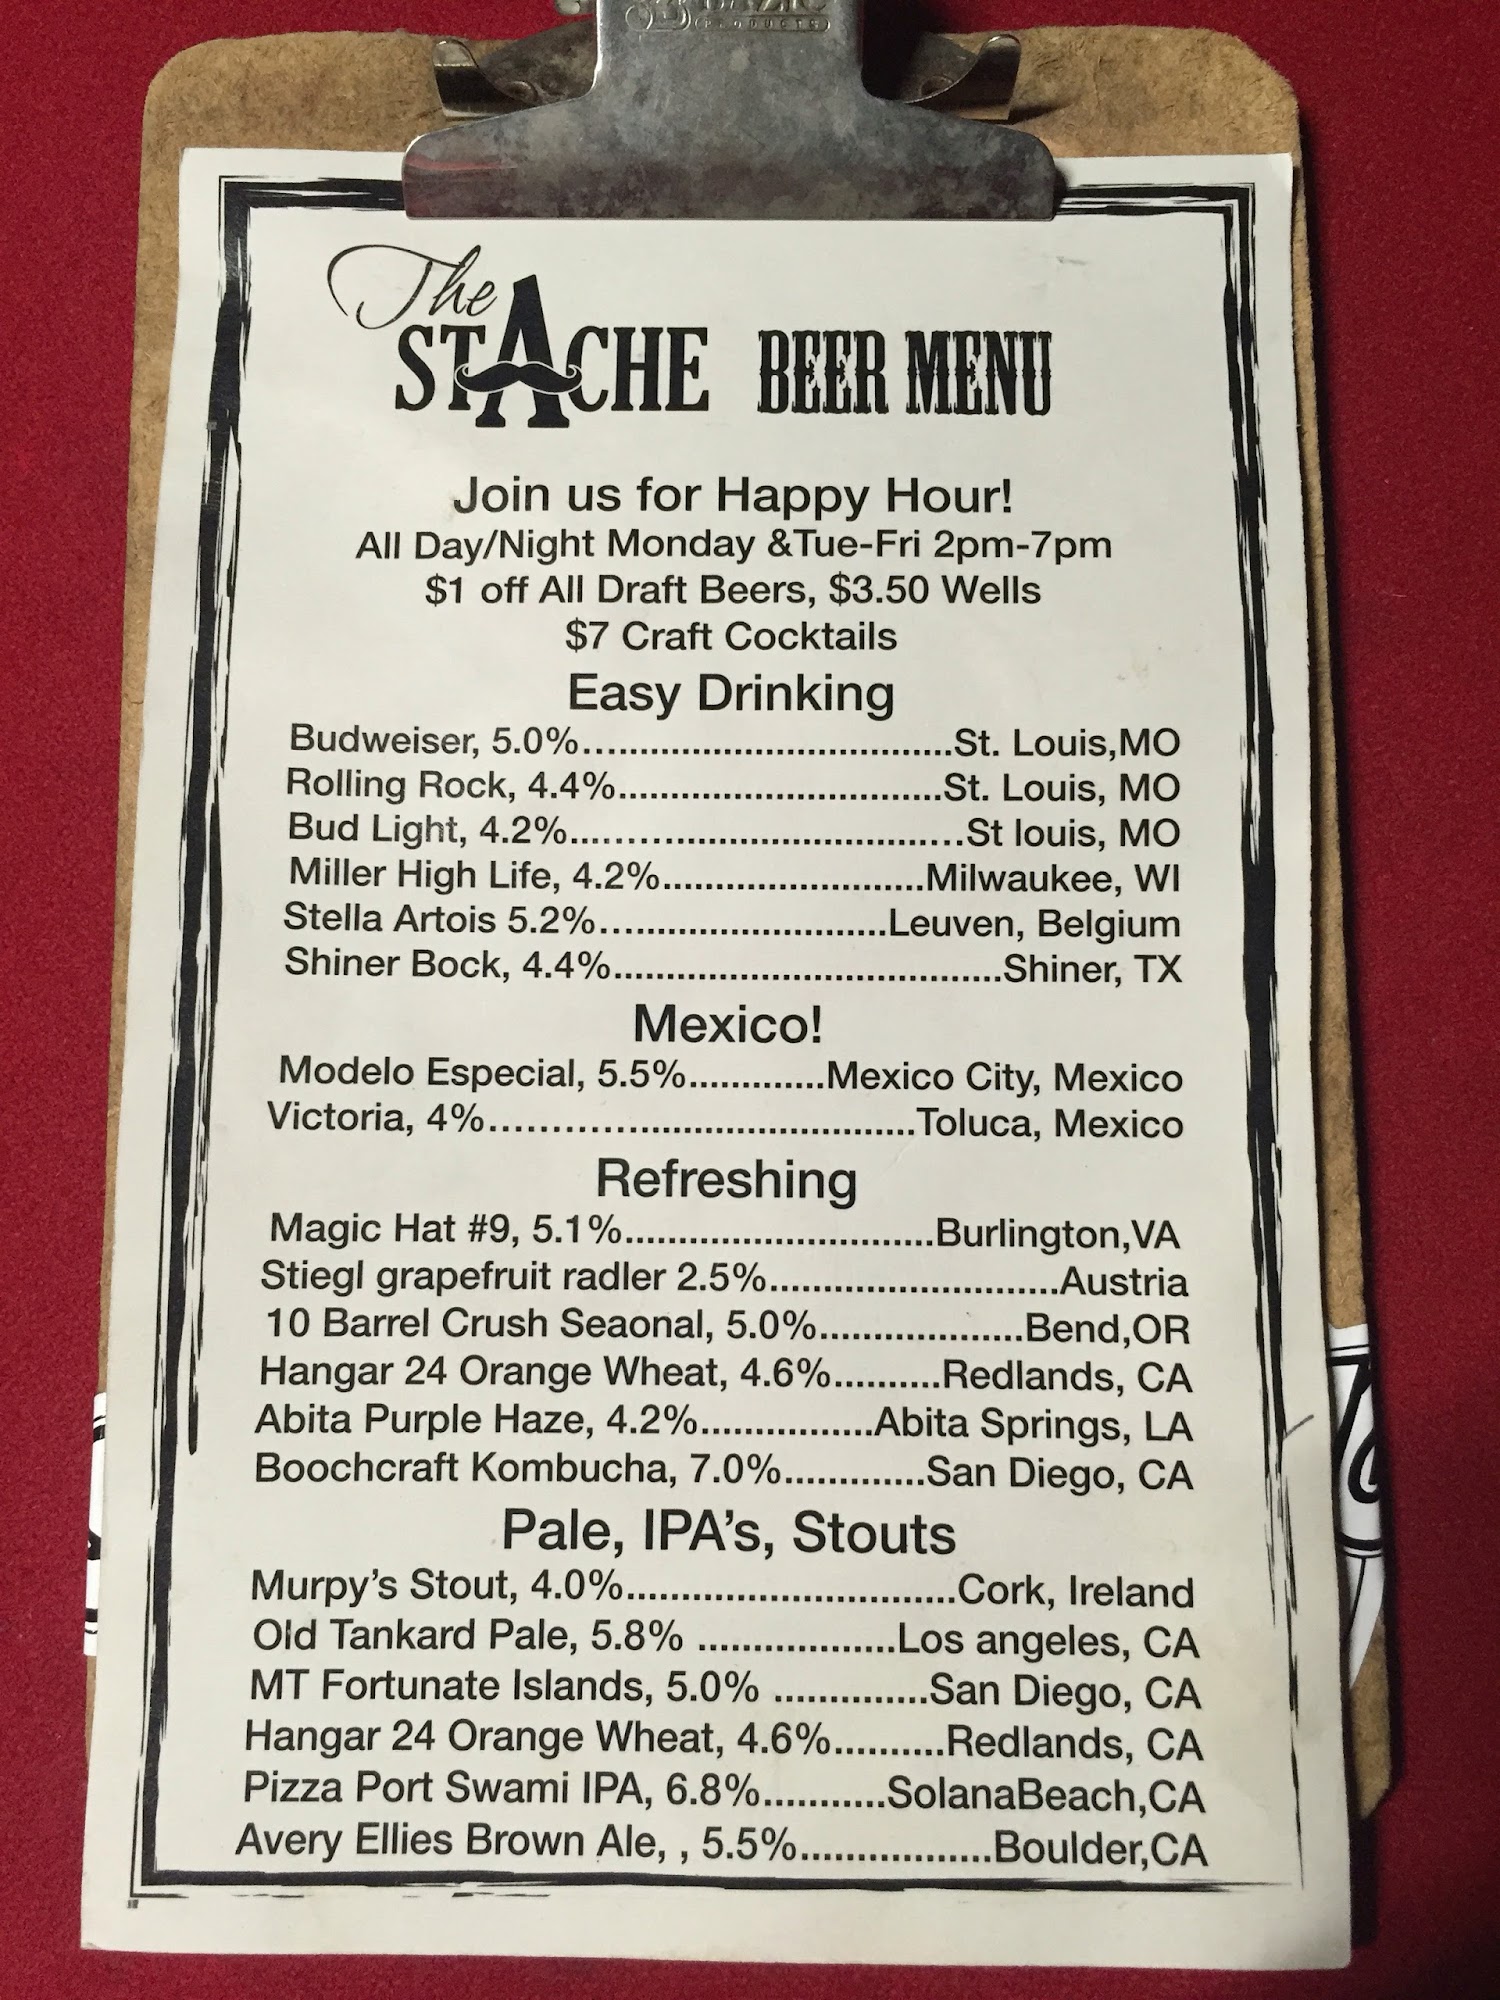 The
STACHE BEER MENU
Join us for Happy Hour!
All Day/Night Monday &Tue-Fri 2pm-7pm
$1 off All Draft Beers, $3.50 Wells
$7 Craft Cocktails
Easy Drinking
Budweiser, 5.0%...................................St. Louis,MO
Rolling Rock, 4.4%...............................St. Louis, MO
Bud Light, 4.2%......................................St louis, MO
Miller High Life, 4.2%.........................Milwaukee, WI
Stella Artois 5.2%...........................Leuven, Belgium
Shiner Bock, 4.4%.....................................Shiner, TX
Mexico!
Modelo Especial, 5.5%.............Mexico City, Mexico
Victoria, 4%.......................................Toluca, Mexico
Refreshing
Magic Hat #9, 5.1%.............................Burlington,VA
Stiegl grapefruit radler 2.5%...........................Austria
10 Barrel Crush Seaonal, 5.0%...................Bend,OR
Hangar 24 Orange Wheat, 4.6%..........Redlands, CA
Abita Purple Haze, 4.2%................Abita Springs, LA
Boochcraft Kombucha, 7.0%.............San Diego, CA
Pale, IPA's, Stouts
Murpy's Stout, 4.0%...............................Cork, Ireland
Old Tankard Pale, 5.8% ...................Los angeles, CA
MT Fortunate Islands, 5.0% ..............San Diego, CA
Hangar 24 Orange Wheat, 4.6%..........Redlands, CA
Pizza Port Swami IPA, 6.8%...........SolanaBeach,CA
Avery Ellies Brown Ale, , 5.5%..................Boulder,CA